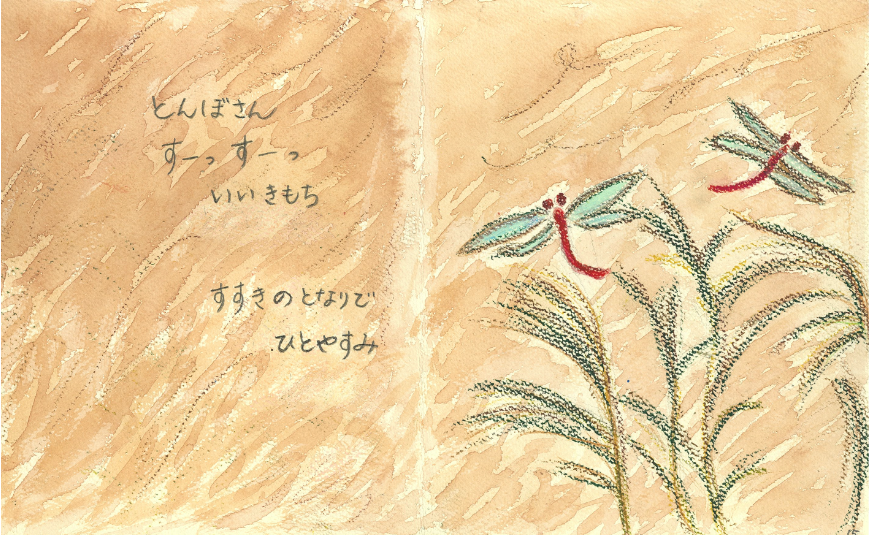 とんぼさん
すーっ すーっ
いい きもち
すすきの となりで
ひとやすみ